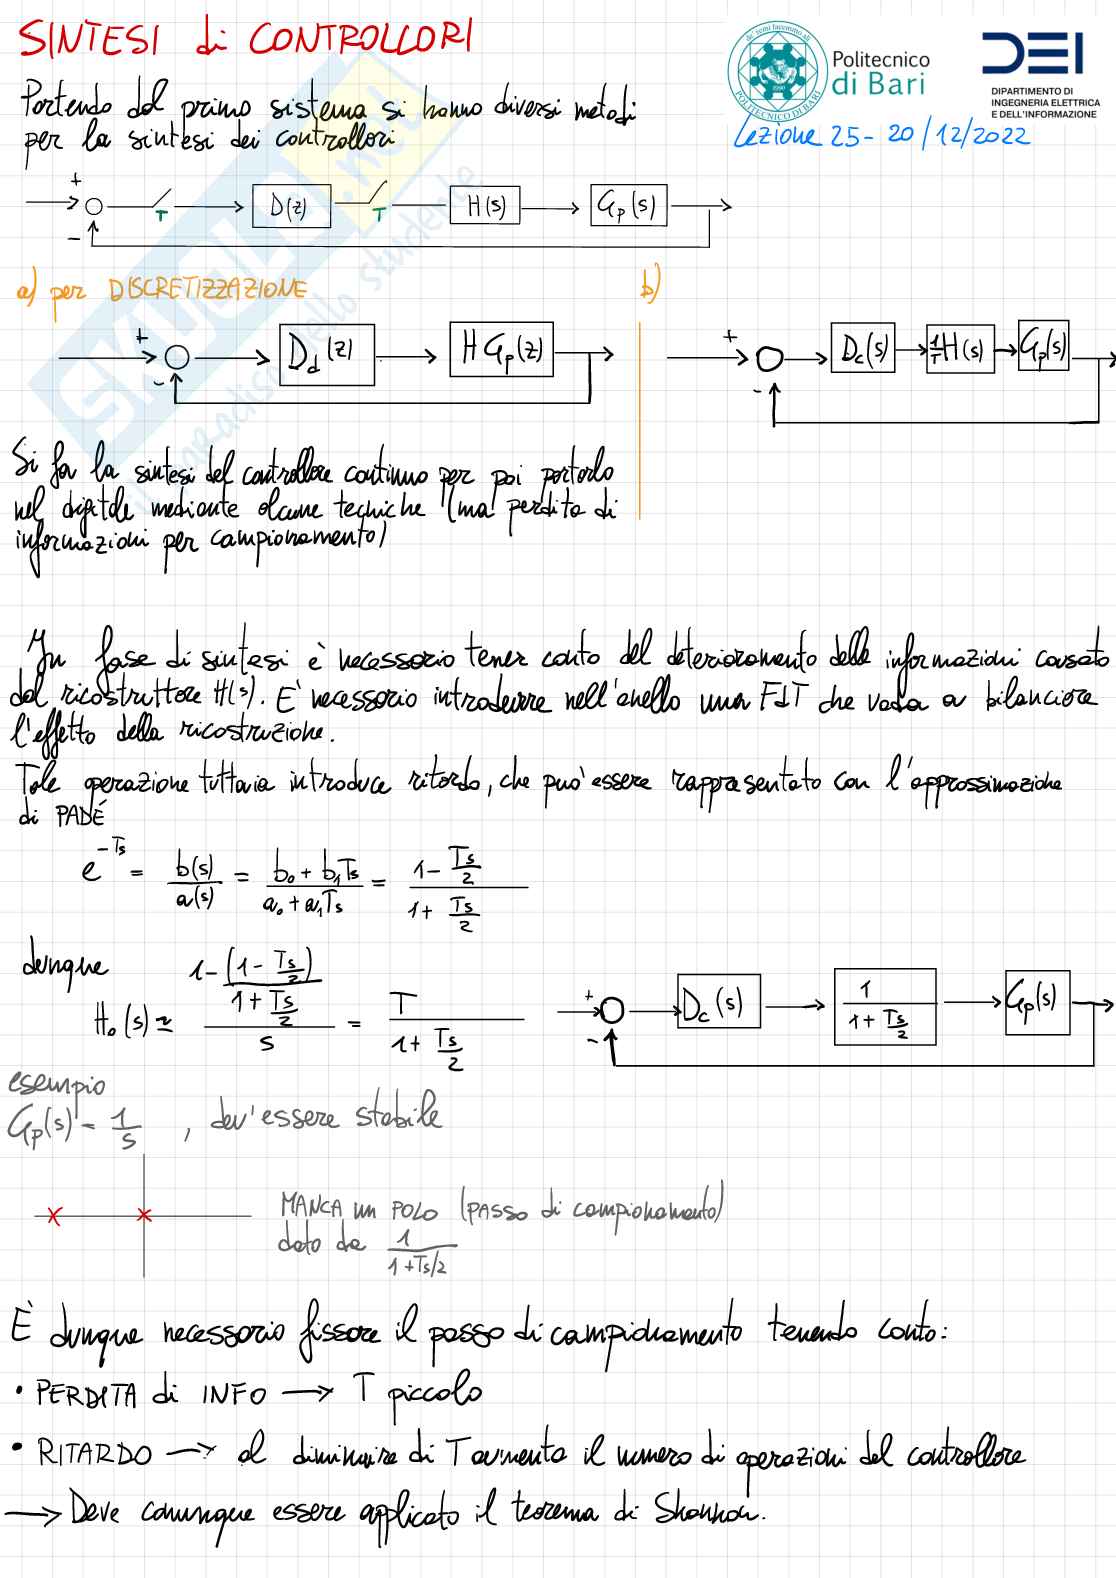 SINTESI di CONTROLLORI
de' remi facemmo ali
POLITECNICO DI BARI
1990
Politecnico
di Bari
DEI
DIPARTIMENTO DI
INGEGNERIA ELETTRICA
E DELL'INFORMAZIONE
Lezione 25 - 20/12/2022
Partendo dal primo sistema si hanno diversi metodi
per la sintesi dei controllori
+ - T D(z) T H(s) Gp(s)
a) per DISCRETIZZAZIONE
b)
+ - Dd(z) HGp(z)
+ - Dc(s) 1/T H(s) Gp(s)
Si fa la sintesi del controllore continuo per poi portarlo
nel digitale mediante alcune tecniche (ma perdita di
informazioni per campionamento)
In fase di sintesi è necessario tener conto del deterioramento delle informazioni causato
dal ricostruttore H(s). E' necessario introdurre nell'anello una FdT che vada a bilanciare
l'effetto della ricostruzione.
Tale operazione tuttavia introduce ritardo, che può essere rappresentato con l'approssimazione
di PADÉ
e^-Ts = b(s)/a(s) = (b₀ + b₁Ts)/(a₀ + a₁Ts) = (1 - Ts/2)/(1 + Ts/2)
dunque
H₀(s) ≃ (1-(1 - Ts/2)/(1 + Ts/2))/s = T/(1 + Ts/2)
+ - Dc(s) 1/(1 + Ts/2) Gp(s)
esempio
Gp(s) = 1/s , dev'essere stabile
MANCA un POLO (PASSO di campionamento)
dato da 1/(1+Ts/2)
È dunque necessario fissare il passo di campionamento tenendo conto:
• PERDITA di INFO → T piccolo
• RITARDO → al diminuire di T aumenta il numero di operazioni del controllore
→ Deve comunque essere applicato il teorema di Shannon.